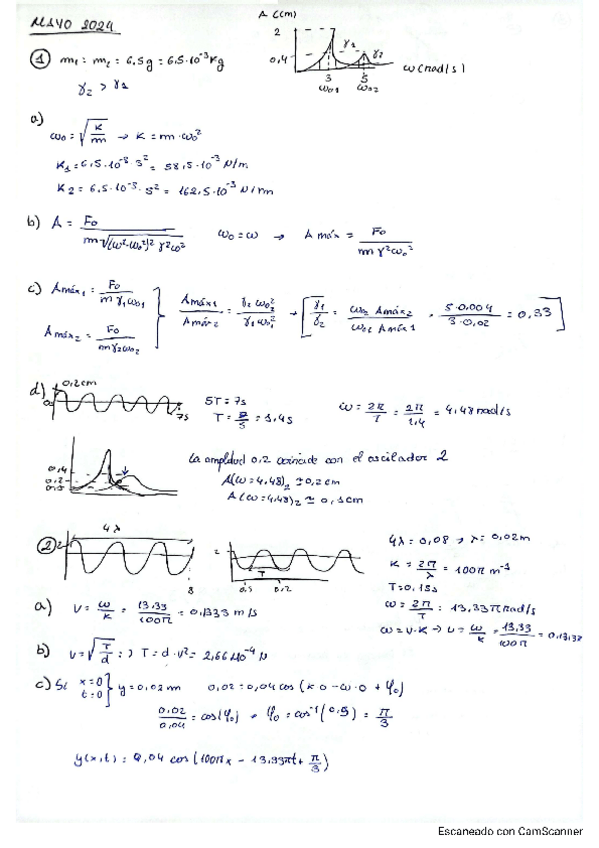 MAYO 2024
A (cm)
2
0,4
γ1
γ2
3
5
ω01
ω02
ω(rad/s)
① m1 = m2 = 6.5g = 6.5·10⁻³ Kg
γ2 > γ1
a)
ω0 = √(K/m) → K = m·ω0²
K1 = 6,5·10⁻³ 3² = 58,5·10⁻³ N/m
K2 = 6,5·10⁻³ · 5² = 162,5·10⁻³ N/m
b) A = F0 / m√((ω²-ω0²)² γ²ω²) ω0 = ω → A máx = F0 / m γ²ω0²
c) Amáx1 = F0 / m γ1 ω01
Amáx2 = F0 / m γ2 ω02
Amáx1 / Amáx2 = γ2 ω02² / γ1 ω01² → [ γ1/γ2 = ω02 Amáx2 / ω01 Amáx1 = 5·0.004 / 3·0,02 = 0,33 ]
d) 0,2cm
7s
5T = 7s
T = 7/5 = 1,4s
ω = 2π/T = 2π/1,4 = 4,48 rad/s
0,4
0,2
La amplitud 0,2 coincide con el oscilador 2
A(ω=4,48)2 ≃ 0,2cm
A(ω=4,48)2 ≃ 0,1cm
② 4λ
2
8
2
T
0,1
0,2
4λ = 0,08 → λ = 0,02m
K = 2π/λ = 100π m⁻¹
T = 0,15s
ω = 2π/T = 13,33π rad/s
ω = v·K → v = ω/K = 13,33/100π = 0,1333
a) v = ω/K = 13,33/100π = 0,1333 m/s
b) v = √(T/d) → T = d·v² = 2,66·10⁻⁴ N
c) Si x=0 t=0 } y = 0,02m 0,02 = 0,04 cos(K·0 - ω·0 + φ0)
0,02/0,04 = cos(φ0) → φ0 = cos⁻¹(0,5) = π/3
y(x,t) = 0,04 cos(100πx - 13,33πt + π/3)
Escaneado con CamScanner